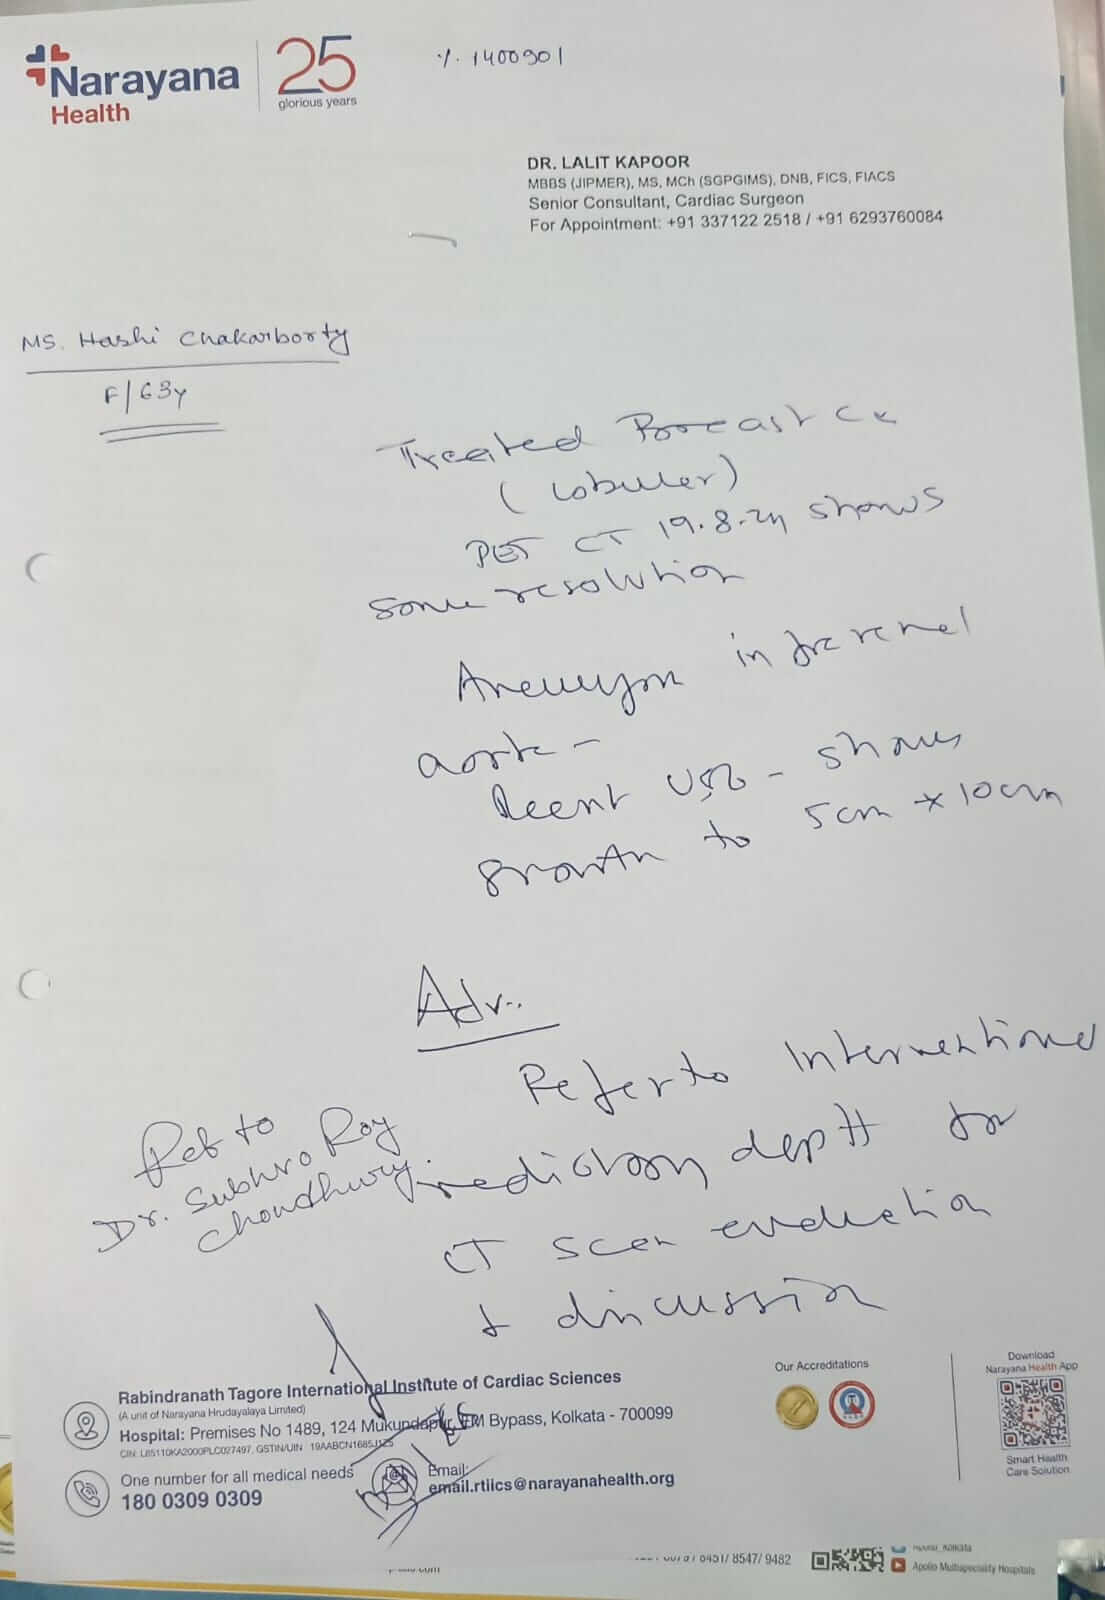 Narayana
Health
25
glorious years
1400901
DR. LALIT KAPOOR
MBBS (JIPMER), MS, MCh (SGPGIMS), DNB, FICS, FIACS
Senior Consultant, Cardiac Surgeon
For Appointment: +91 337122 2518 / +91 6293760084
MS. Hashi Chakarborty
F/63y
Treated Breast Ca
(Lobuler)
PET CT 19.8.24 shows
some resolution
Aneurysm infrarenal
aorta -
Recent USG - shows
growth to 5cm x 10cm
Adv..
Refer to Interventional
radiology deptt for
CT scan evaluation
& discussion
Ref to
Dr. Subhro Roy
Choudhury.
Rabindranath Tagore International Institute of Cardiac Sciences
(A unit of Narayana Hrudayalaya Limited)
Hospital: Premises No 1489, 124 Mukundapur, EM Bypass, Kolkata - 700099
CIN: L85110KA2000PLC027497, GSTIN/UIN 19AABCN1685J1Z5
One number for all medical needs
180 0309 0309
Email:
email.rtiics@narayanahealth.org
Our Accreditations
Download
Narayana Health App
Smart Health
Care Solution
8451/ 8547/ 9482
Apollo Multispeciality Hospitals